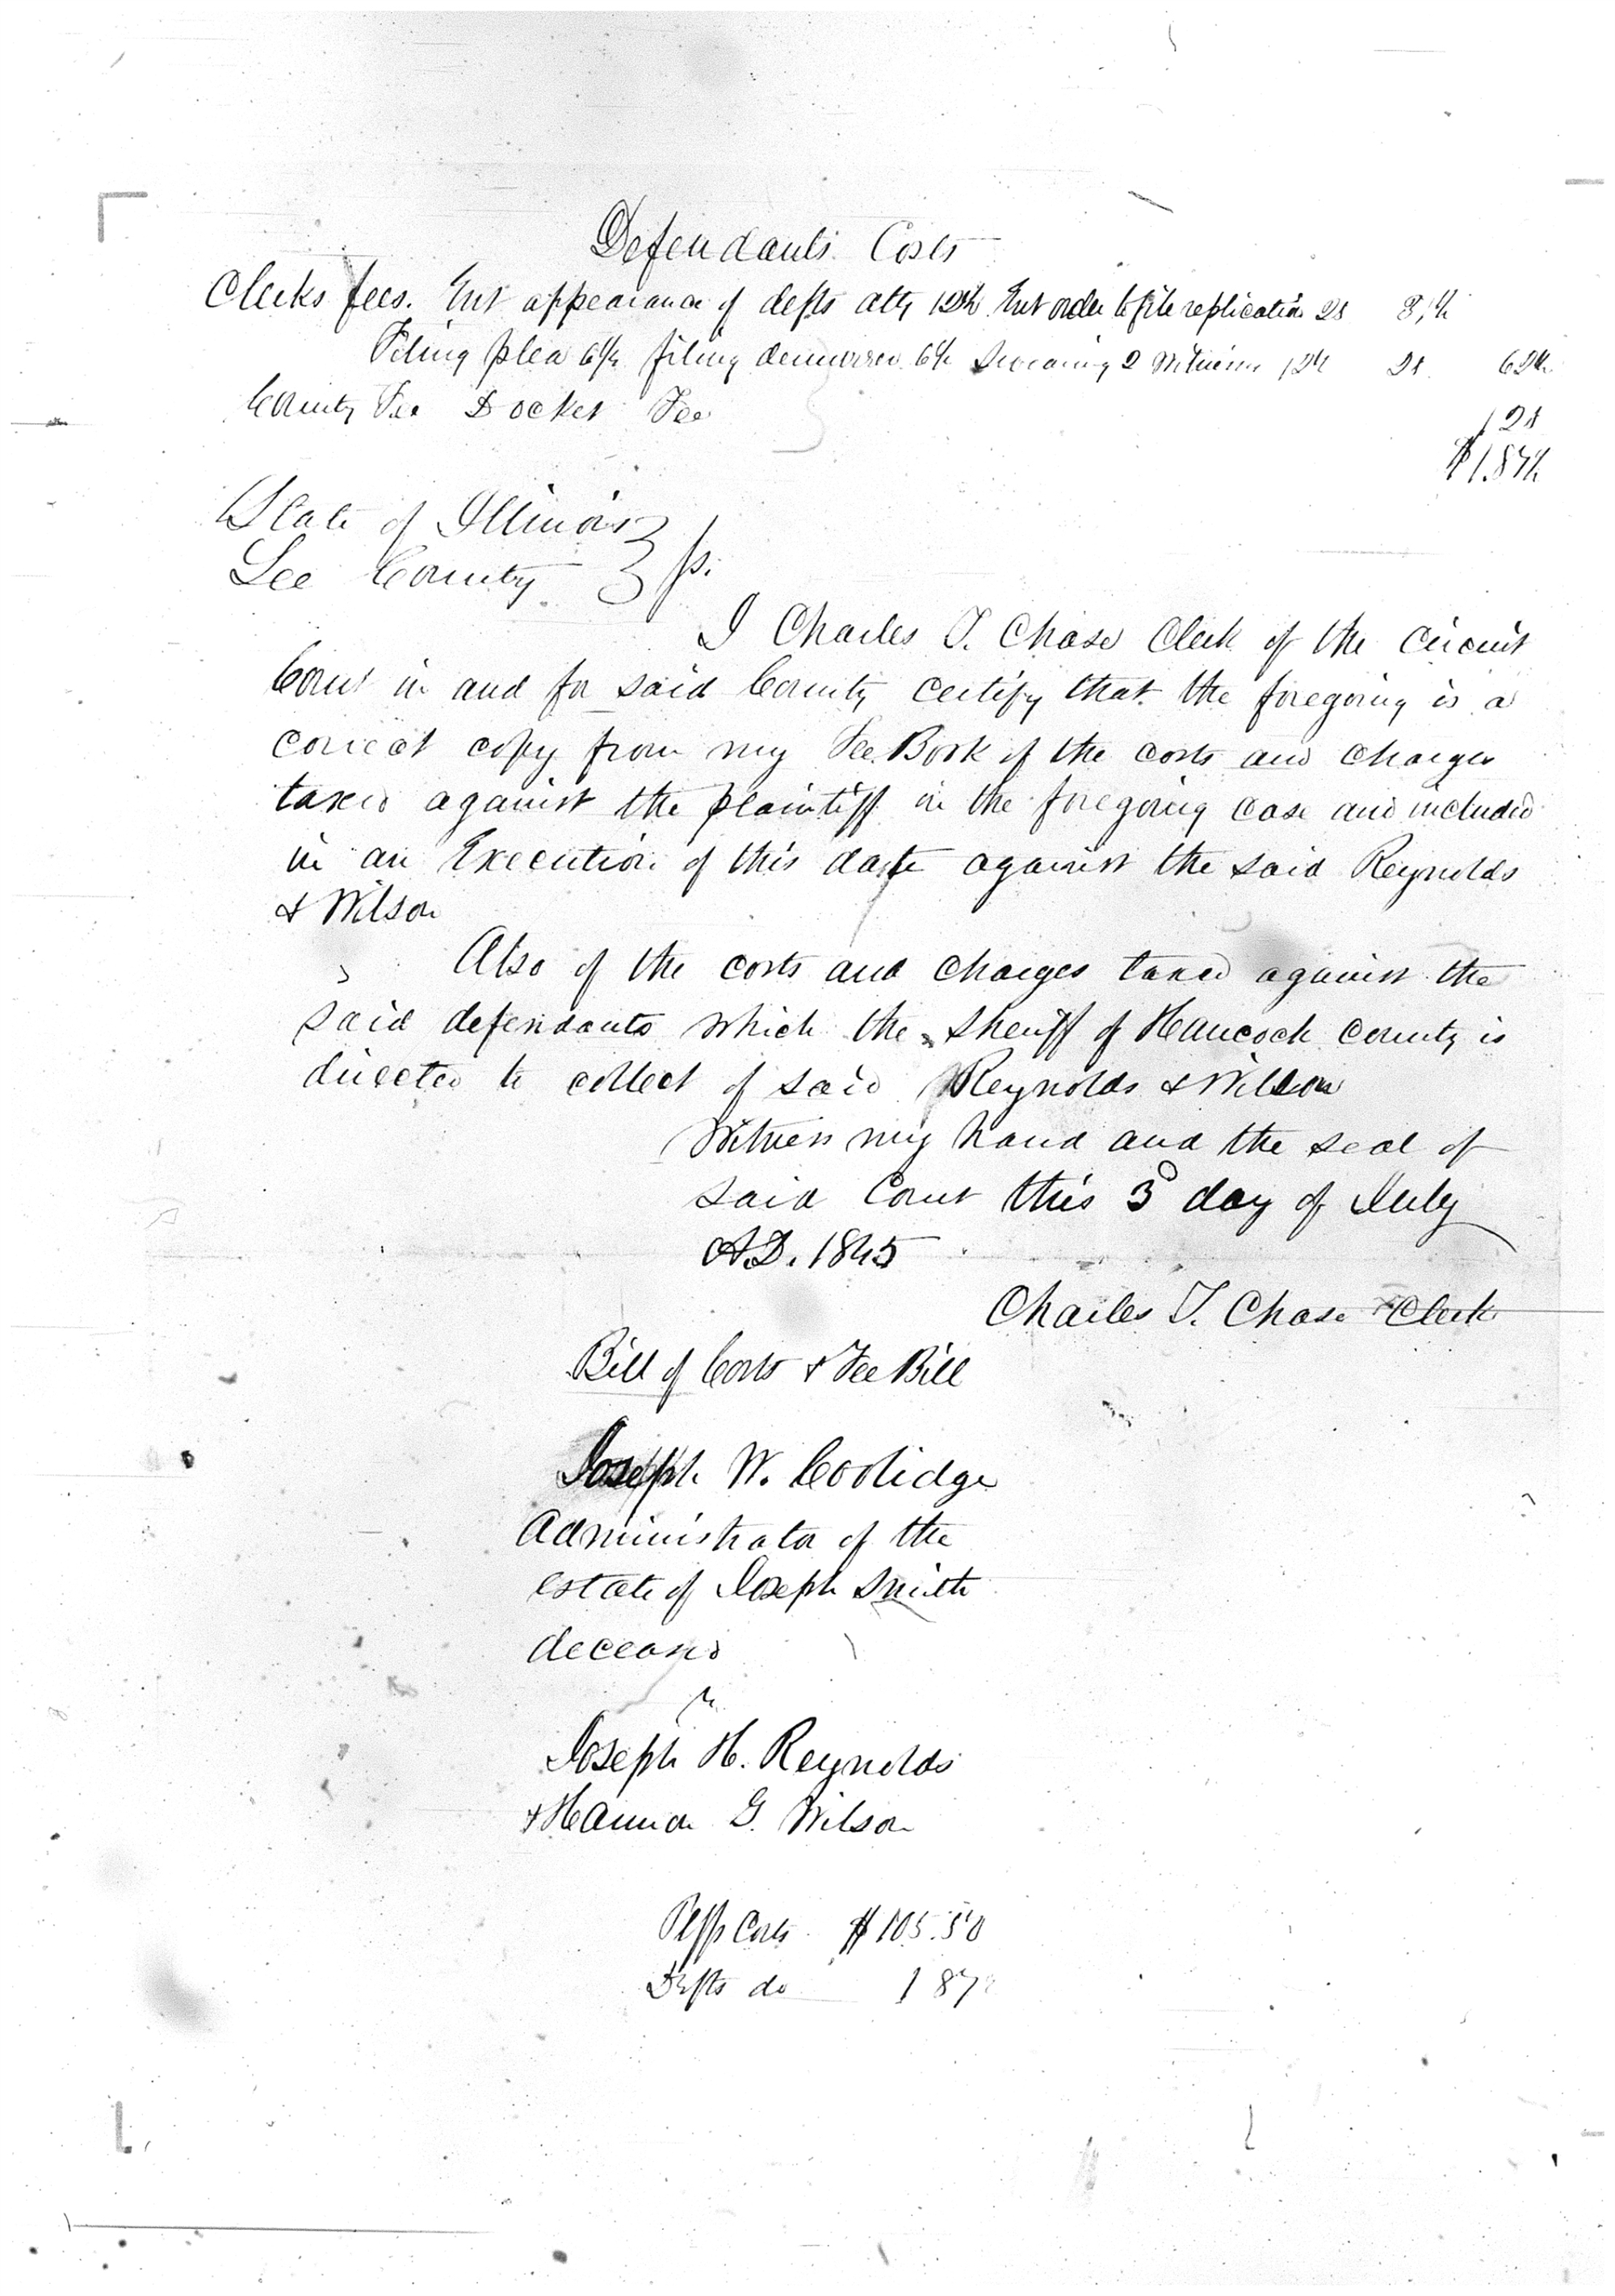 Defendants Costs
Clerks fees. Ent appearance of defts atty 12½ Ent order to file replication 25 37½
Filing plea 6¼ filing demurrer 6¼ Swearing 2 Witnesses 12½ 25 62½
County Fee Docket Fee
1 25
$1.87½
State of Illinois
Lee County } ss.
I Charles T. Chase Clerk of the Circuit
Court in and for said County certify that the foregoing is a
correct copy from my Fee Book of the costs and charges
taxed against the plaintiff in the foregoing case and included
in an Execution of this date against the said Reynolds
& Wilson
Also of the costs and charges taxed against the
said defendants which the Sheriff of Hancock County is
directed to collect of said Reynolds & Wilson
Witness my hand and the seal of
said Court this 3d day of July
A.D. 1845
Charles T. Chase Clerk
Bill of Costs & Fee Bill
Joseph W. Coolidge
Administrator of the
estate of Joseph Smith
deceased
vs
Joseph H. Reynolds
& Harmon G. Wilson
Plffs Costs $105.50
Defts do 1 87½